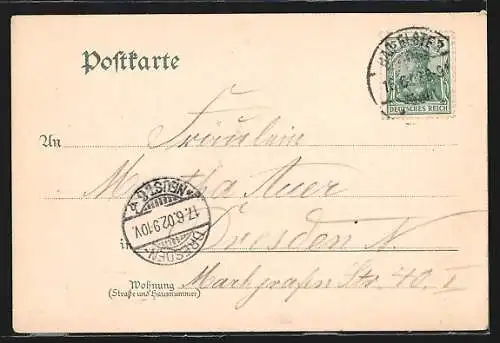 Postkarte
BAD ELSTER
DEUTSCHES REICH
An Fräulein
Martha Auer
* NEUST. 6. *
17.6.02 9-10V.
DRESDEN-
in Dresden N.
Wohnung Markgrafen Str. 40. I
(Straße und Hausnummer)